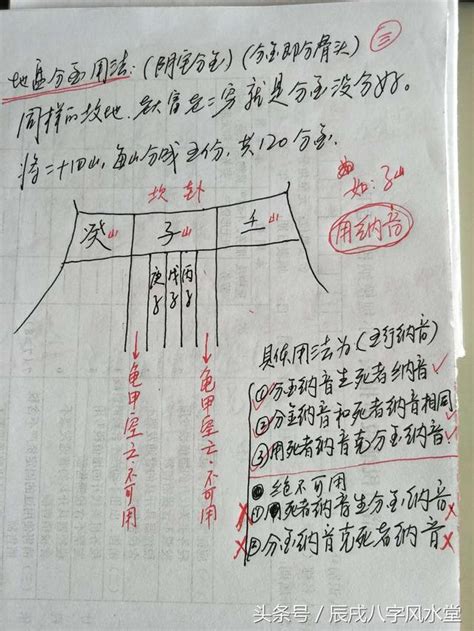 三
地盘分金用法：(阴宅分金)(分金即分骨头)
同样的坟地，老大富老二穷就是分金没分好。
将二十四山，每山分成五份，共120分金.
如：子山
用纳音
坎卦
癸山 子山 壬山
庚子 戊子 丙子
龟甲空亡不可用
龟甲空亡不可用
具体用法为(五行纳音)
①分金纳音生死者纳音✓
②分金纳音和死者纳音相同✓
③用死者纳音克分金纳音✓
绝不可用
①用死者纳音生分金纳音×
②分金纳音克死者纳音×
头条号/辰戌八字风水堂